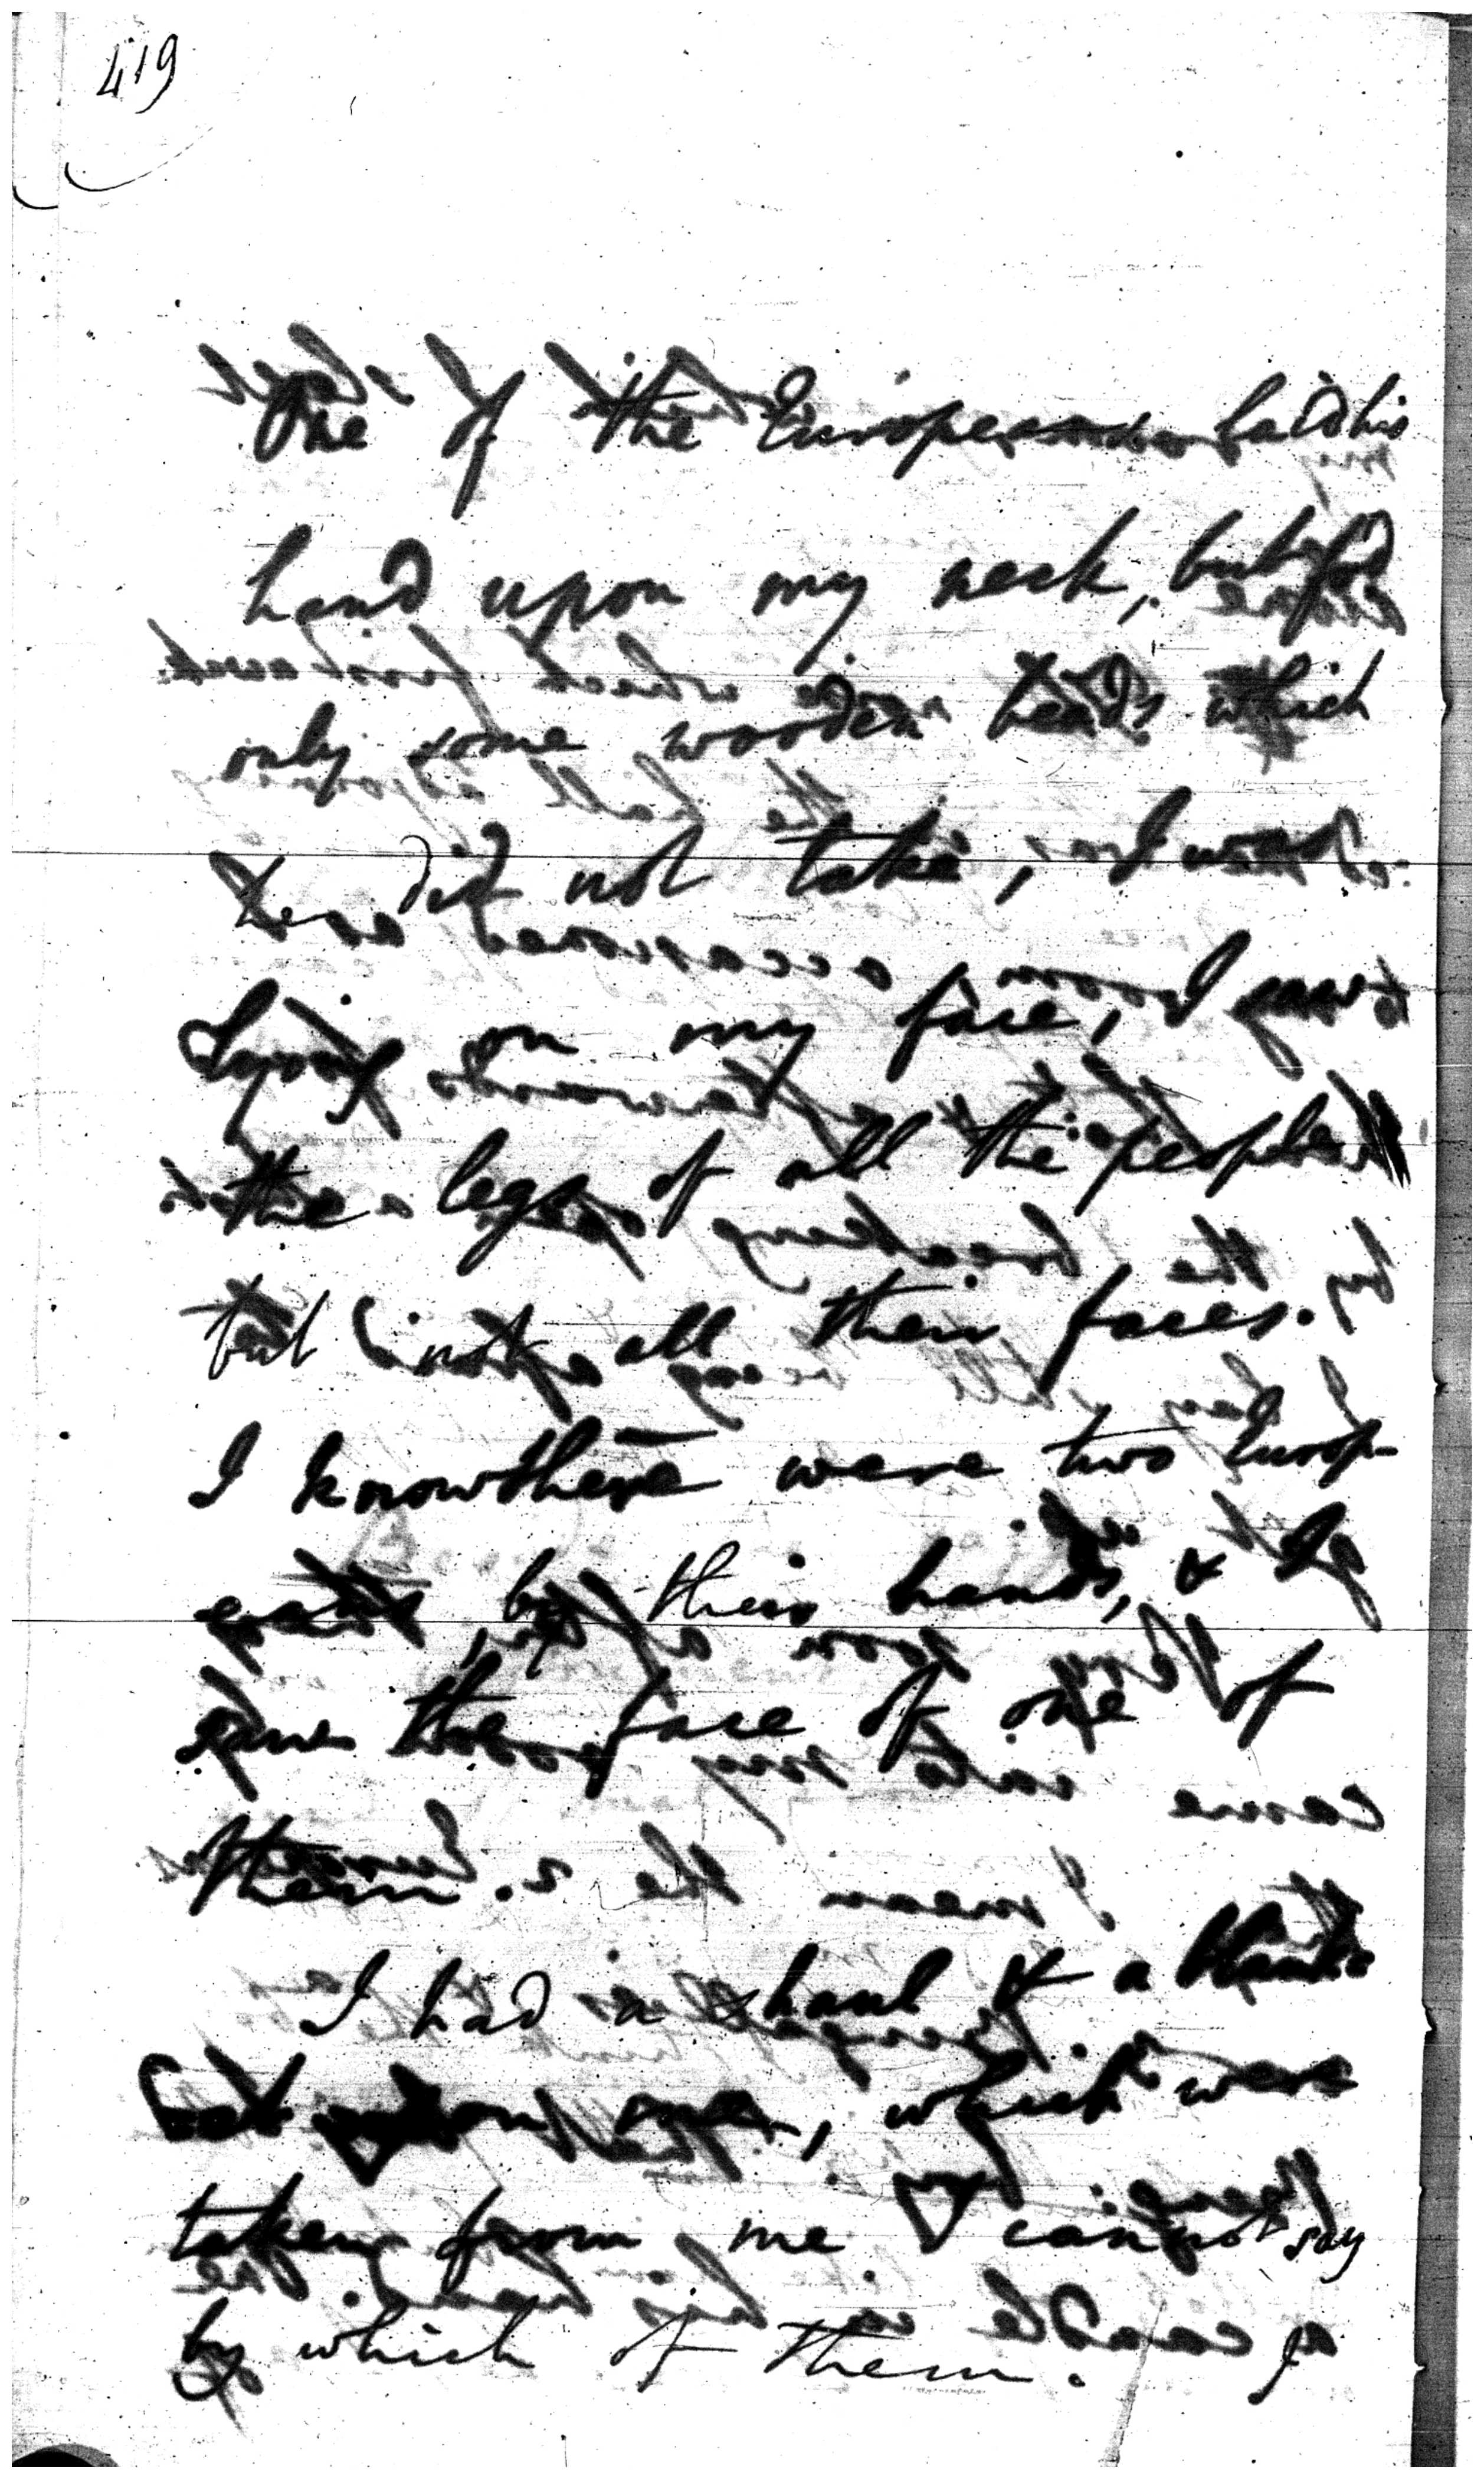 419
One of the Europeans laid his
hand upon my neck, but fd
only some wooden beads which
he did not take, I was
Lying on my face, I saw
the legs of all the people
but not all their faces.
I know there were two Europ-
eans, by their hands, & I
saw the face of one of
them.
I had a shaul & a blank-
et upon me, which were
taken from me I cannot say
by which of them. I